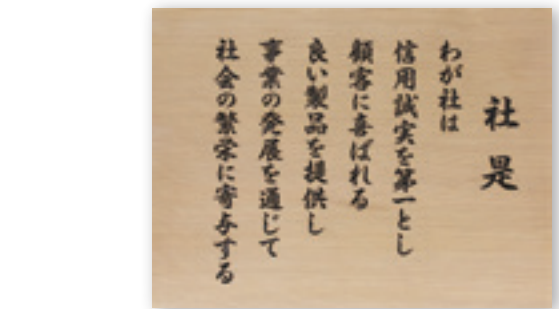 社是
わが社は
信用誠実を第一とし
顧客に喜ばれる
良い製品を提供し
事業の発展を通じて
社会の繁栄に寄与する